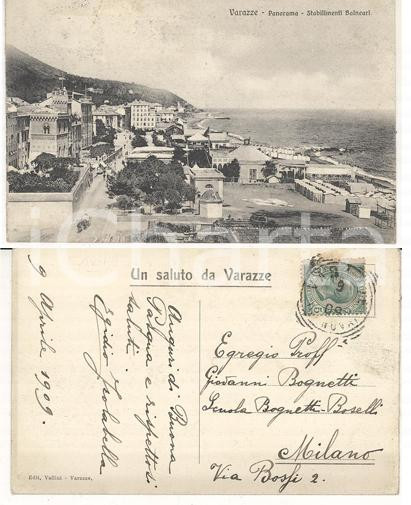 Varazze - Panorama - Stabilimenti Balneari.
Un saluto da Varazze
9 Aprile 1909.
Auguri di Buona
Pasqua e rispettosi
saluti.
Egidio
Egregio Proff
Giovanni Bognetti
Scuola Bognetti-Boselli
Milano
Via Bossi 2.
Edit. Vallini - Varazze.
iCharta